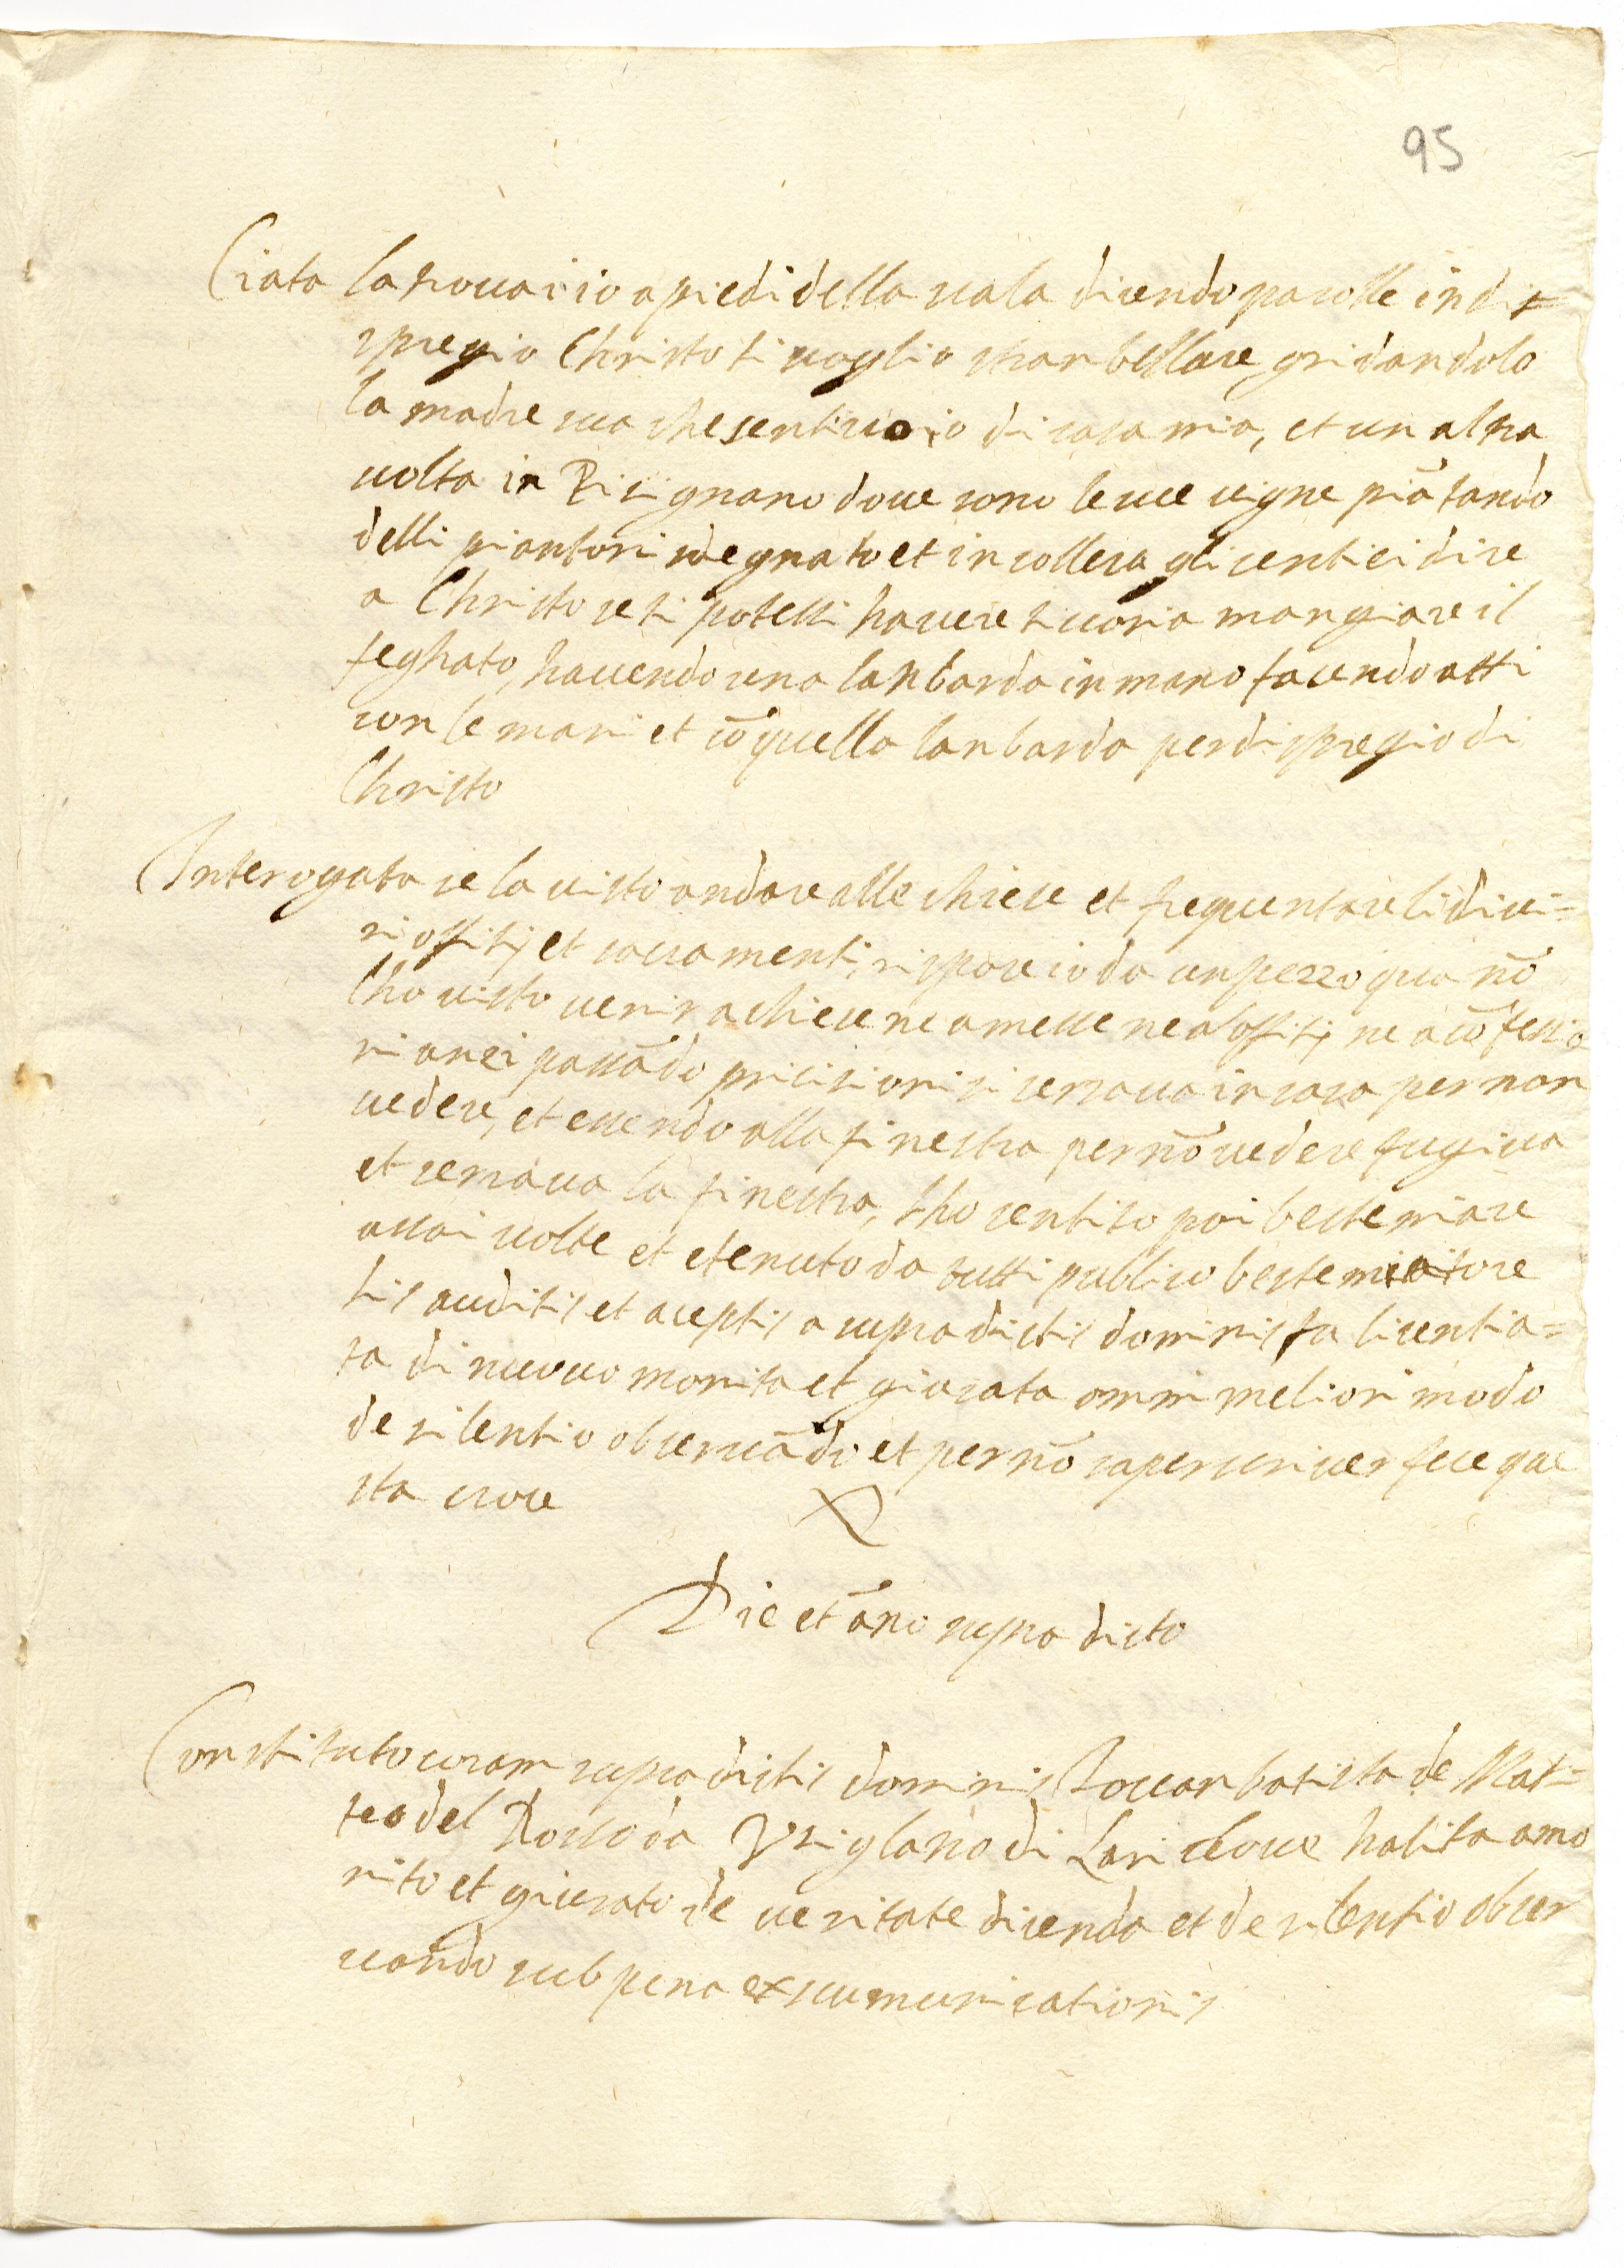 95
ciata la trovai io a piedi della scala dicendo parolle in di=
spregio Christo ti voglio sbarbellare gridandolo
la madre sua che sentivo io di casa mia, et un altra
volta in Risignano dove sono le sue vigne piãtando
delli piantoni sdegnato et in collera gli sentiei dire
a Christo se ti potessi havere ti voria mangiare il
feghato, havendo una lanbarda in mano facendo atti
con le mani et cõ quella lanbarda per dispregio di
Christo
Interogata se la visto andare alle chiese et frequentare li divi=
ni offitij et sacramenti, rispose io da un pezzo qua nõ
l'ho visto venir a chiese ne a messe ne a offitij ne a cõfessio
ni anzi passãdo pricisioni si serrava in casa per non
vedere, et essendo alla finestra per nõ vedere fugiva
et serrava la finestra, l'ho sentito poi bestemiare
assai volte et e tenuto da tutti publico bestemiatore
his auditis et aceptis a supradictis dominis fu licentia=
ta di nuovo monita et giurata omni meliori modo
de silentio observãdo et per nõ saper scriver fece que
sta croce
Die et ãno supra dicto
Constituto coram supradictis dominis Iovanbatista de Mat=
teo del Rosso da Usiglano di Lari dove habita amo
nito et giurato de veritate dicenda et de silentio obser
vando sub pena excumunicationis